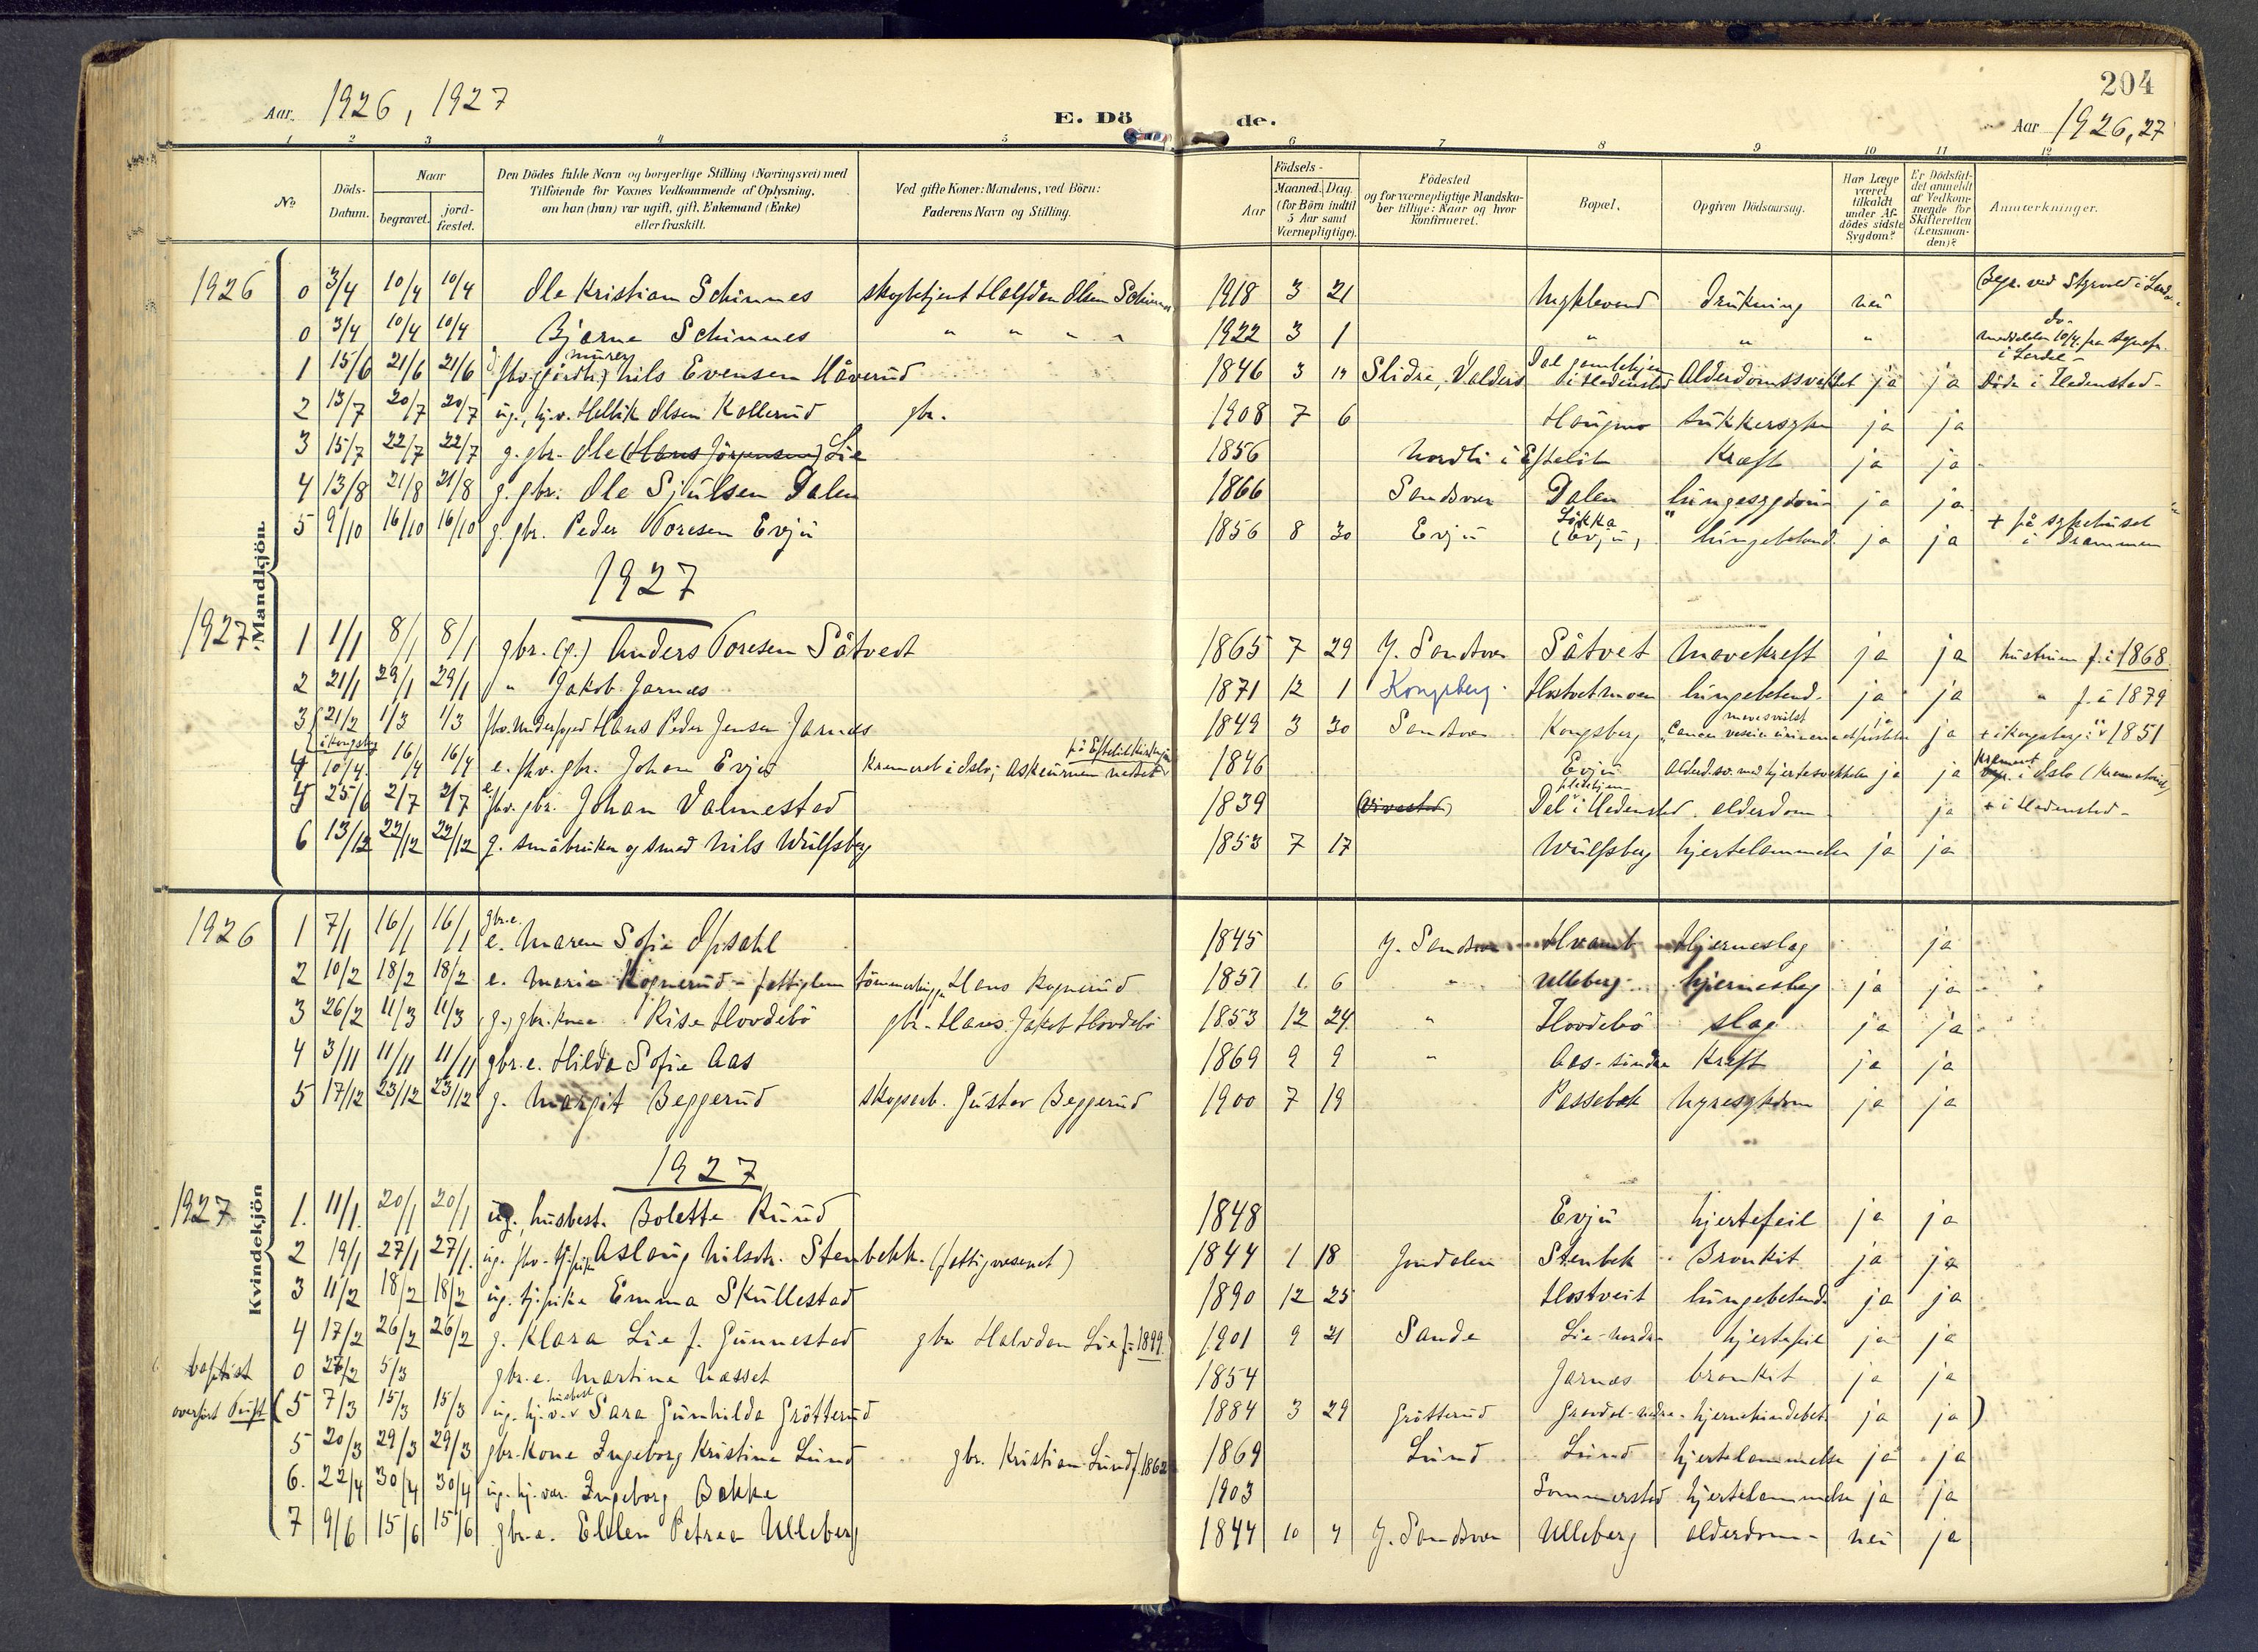 204
Aar 1926, 1927
E. Dö de.
Aar 1926,27
1 2 3 4 5 6 7 8 9 10 11 12
No
Döds-Datum.
Naar
begravet. jord-fæstet.
Den Dödes fulde Navn og borgerlige Stilling (Næringsvei) med Tilföiende for Voxnes Vedkommende af Oplysning, om han (hun) var ugift, gift, Enkemand (Enke) eller fraskilt.
Ved gifte Koner: Mandens, ved Börn: Faderens Navn og Stilling.
Aar
Födsels-
Maaned. Dag. (for Börn indtil 5 Aar samt Værnepligtige).
Födested og for værnepligtige Mandskaber tillige: Naar og hvor konfirmeret.
Bopæl.
Opgiven Dödsaarsag.
Har Læge været tilkaldt under Afdödes sidste Sygdom?
Er Dödsfaldet anmeldt af Vedkommende for Skifteretten (Lensmanden)?
Anmærkninger.
Mandkjön.
1926 0 3/4 10/4 10/4 Ole Kristian Schinnes skogbetjent Halfdan Olsen Schinnes 1918 3 21 Myklevand Drukning nei
0 3/4 10/4 10/4 Bjarne Schinnes " " " " 1922 3 1 " " " do.
1 15/6 21/6 21/6 murer Nils Evensen Håverud 1846 3 Slidre, Valders Dal gamlehjem i Hedenstad Alderdomssvakhet ja ja Döde i Hedenstad
2 13/7 20/7 20/7 ug., hj.v. Hellik Olsen Kollerud gbr. 1908 7 6 Haugmo sukkersyke ja ja
3 15/7 22/7 22/7 g. gbr. Ole (Hans Jörgensen) Lie 1856 Nordli i Efteløt Kræft ja ja
4 13/8 21/8 21/8 g. gbr. Ole Sjulsen Dalen 1866 Sandsvær Dalen lungesygdom ja ja
5 9/10 16/10 16/10 g. gbr. Peder Toresen Evju 1856 8 30 Evju Løkka (Evju) lungebetend. ja ja + på sykehuset i Drammen
1927
1927 1 1/1 8/1 8/1 gbr. (g.) Anders Toresen Såtvedt 1865 7 29 Y. Sandsvær Såtvet Mavekreft ja ja hustruen f. i 1868
2 21/1 29/1 29/1 " Jakob Jarnæs 1871 12 1 Kongsberg Hostvetmoen lungebetend. ja ja " f. i 1879
3 21/2 1/3 1/3 Hans Peder Jensen Jarnæs 1849 3 30 Sandsvær Kongsberg mavesvulst ja ja + i Kongsberg 1851
i Kongsberg
4 10/4 16/4 16/4 e. fhv. gbr. Johan Evju Kremeret i Oslo, Askeurnen nedsat på Efteløt Kirkegård 1846 Evju ja ja i Oslo
25/6 2/7 2/7 e. fhv. gbr. Johan Valmestad 1839 Dal i Hedenstad alderdom ja + i Hedenstad
6 13/12 22/12 22/12 g. småbruker og smed Nils Wulfsberg 1853 7 17 Wulfsberg hjertelammelse ja ja
Kvindekjön
1926 1 7/1 16/1 16/1 gbr.e. e. Maren Sofie Opsahl 1845 Y. Sandsvær Hvamb Hjerneslag ja
2 10/2 18/2 18/2 e. Marie Rognerud - fattiglem tömmerhugger Hans Rognerud 1851 1 6 " Ulleberg hjerneslag ja ja
3 26/2 11/3 11/3 (g.) gbr. kone Kise Hovdebö gbr. Hans Jakob Hovdebö 1853 12 24 " Hovdebö slag ja ja
4 3/11 11/11 11/11 gbr.e. Hilda Sofie Aas 1869 9 9 " Aas-søndre Kræft ja ja
5 17/12 23/12 23/12 g. Margit Beggerud skogsarb. Gustav Beggerud 1900 7 19 Passebek Nyresykdom ja ja
1927
1927 1. 11/1. 20/1 20/1 ug. husbest. Bolette Ruud 1848 Evju hjertefeil ja ja
2 19/1 27/1 27/1 ug. fhv. tj.pike Aslaug Nilsdr. Stenbekk. (fattigvesenet) 1844 1 18 Jondalen Stenbek Bronkit ja ja
3 11/2 18/2 18/2 ug. tj.pike Emma Skullestad 1890 12 25 Hostveit lungebetend. ja ja
4 17/2 26/2 26/2 g. Klara Lie f. Gunnestad gbr Halvdan Lie f. 1899. 1901 9 21 Sande Lie-nordre hjertefeil ja ja
baptist 0 27/2 5/3 gbr.e. Martine Nasset 1854 Jarnæs bronkit ja ja
overfört (5 7/3 15/3 15/3 ug. hj.v. husbest Sara Gunhilda Gröttenrud 1884 3 29 Grötterud hjernehindebet. ja ja)
5 20/3 29/3 29/3 gbr. kone Ingeborg Kristine Lund gbr. Kristian Lund f. 1862 1869 Lund Lund hjertelammelse ja ja
6. 22/4 30/4 30/4 ug. hj.vær. Ingeborg Bakke 1903 Sommerstad hjertelammelse ja ja
7 9/6 15/6 15/6 gbr.e. Ellen Petrea Ulleberg 1844 10 4 Y. Sandsvær Ulleberg alderdom - nei ja